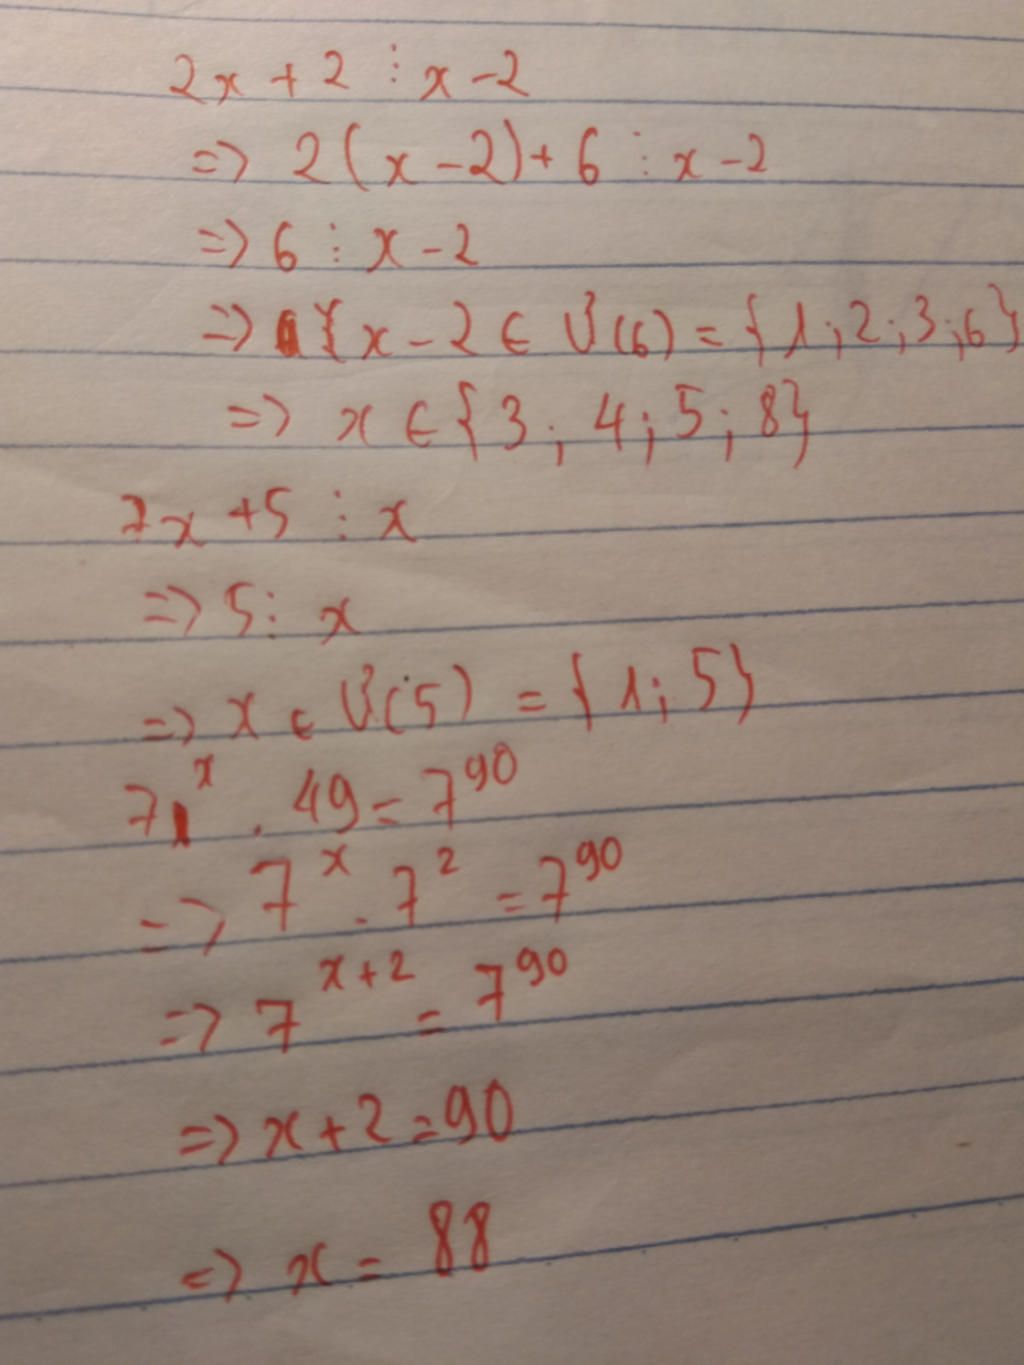 2x + 2 ⋮ x - 2
=> 2(x - 2) + 6 ⋮ x - 2
=> 6 ⋮ x - 2
=> { x - 2 ∈ Ư(6) = {1; 2; 3; 6}
=> x ∈ {3; 4; 5; 8}
7x + 5 ⋮ x
=> 5 ⋮ x
=> x ∈ Ư(5) = {1; 5}
7^x . 49 = 7^90
=> 7^x . 7^2 = 7^90
=> 7^(x+2) = 7^90
=> x + 2 = 90
=> x = 88